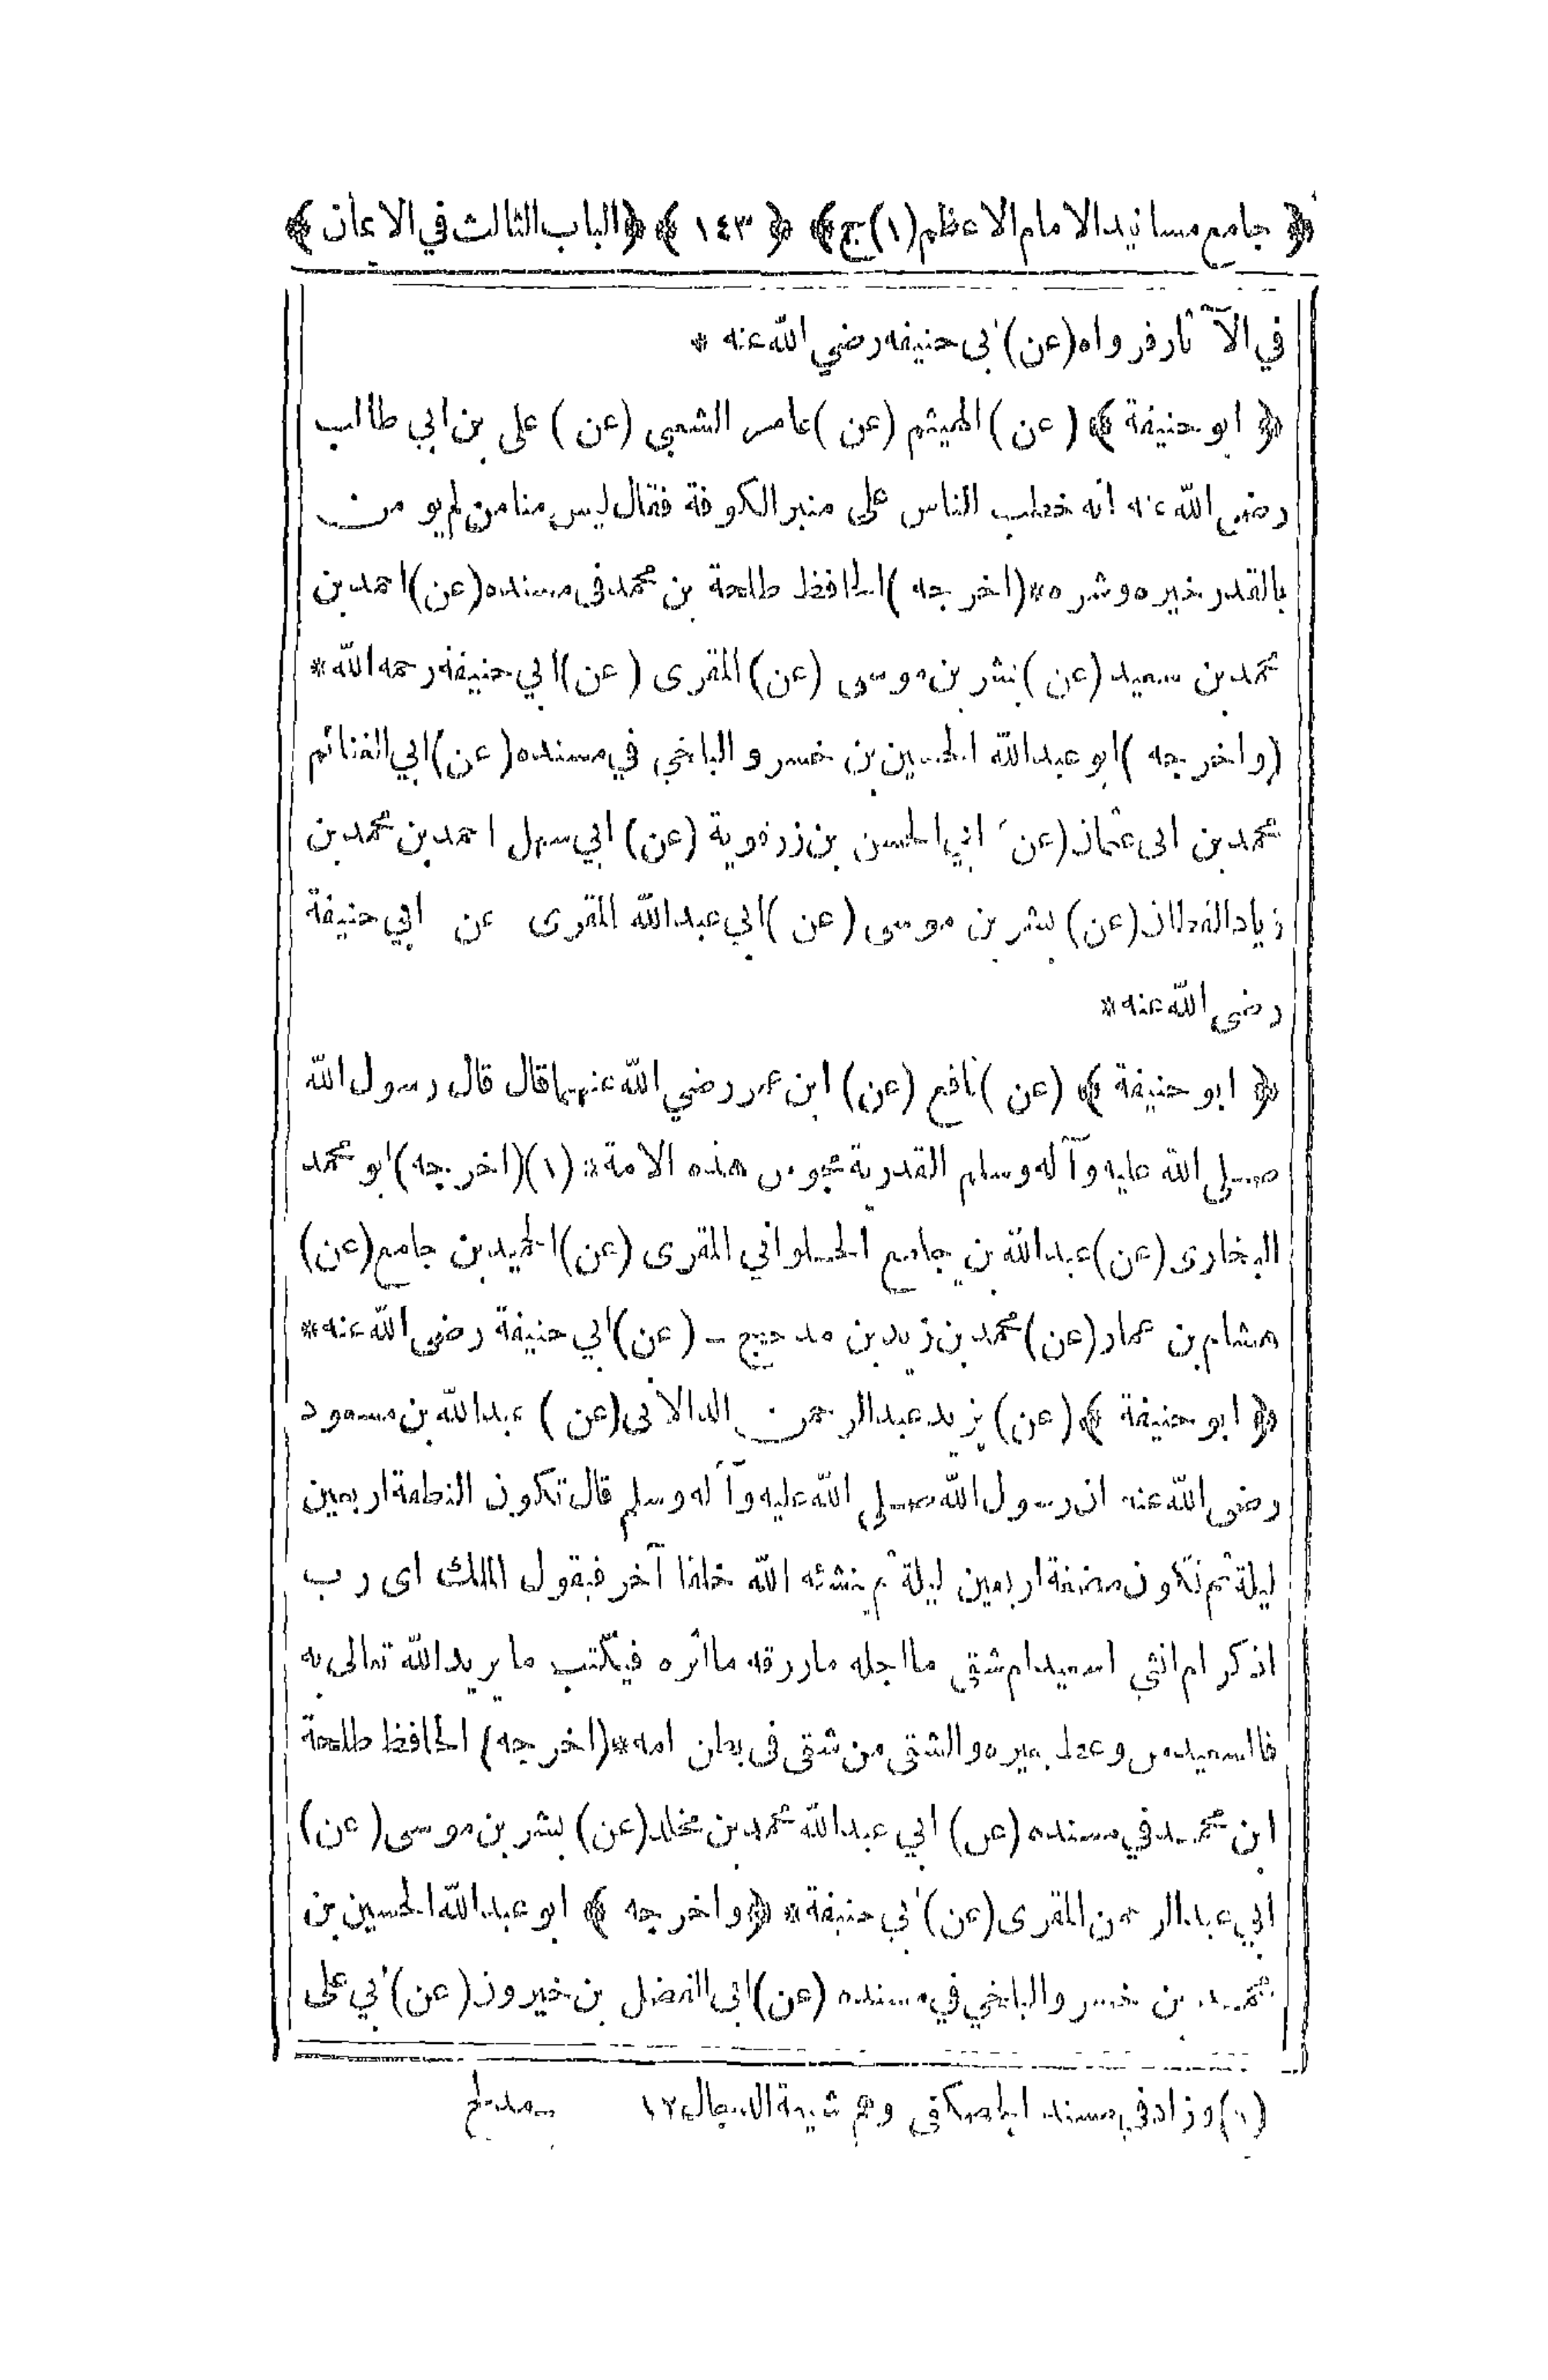 ﴿ جامع مسانيد الامام الاعظم (١) ج ﴾ ﴿ ١٤٣ ﴾ ﴿ الباب الثالث في الايمان ﴾
في الآثار فرواه (عن) ابي حنيفه رضي الله عنه *
﴿ ابو حنيفة ﴾ (عن) الهيثم (عن) عامر الشعبي (عن) على بن ابي طالب
رضى الله عنه انه خطب الناس على منبر الكوفة فقال ليس منا من لم يومن
بالقدر خيره وشره * (اخرجه) الحافظ طلحة بن محمد فى مسنده (عن) احمد بن
محمد بن سعيد (عن) بشر بن موسى (عن) المقرى (عن) ابي حنيفة رحمه الله *
(واخرجه) ابو عبد الله الحسين بن خسرو البلخي في مسنده (عن) ابي الغنائم
محمد بن ابى عثمان (عن) ابي الحسن بن زرقوية (عن) ابي سهل احمد بن محمد بن
زياد القطان (عن) بشر بن موسى (عن) ابي عبد الله المقرى عن ابي حنيفة
رضى الله عنه *
﴿ ابو حنيفة ﴾ (عن) نافع (عن) ابن عمر رضي الله عنهما قال قال رسول الله
صلى الله عليه وآله وسلم القدرية مجوس هذه الامة * (١) (اخرجه) ابو محمد
البخارى (عن) عبد الله بن جامع الحلواني المقرى (عن) الحميد بن جامع (عن)
هشام بن عمار (عن) محمد بن زيد بن مدحيج - (عن) ابي حنيفة رضى الله عنه *
﴿ ابو حنيفة ﴾ (عن) يزيد عبد الرحمن الدالانى (عن) عبد الله بن مسعود
رضى الله عنه ان رسول الله صلى الله عليه وآله وسلم قال تكون النطفة اربعين
ليلة ثم تكون مضغة اربعين ليلة ثم ينشئه الله خلقا آخر فيقول الملك اى رب
اذكر ام انثى اسعيد ام شقى ما اجله ما رزقه ما اثره فيكتب ما يريد الله تعالى به
فالسعيد من وعظ بغيره والشقى من شقى فى بطن امه * (اخرجه) الحافظ طلحة
ابن محمد في مسنده (عن) ابي عبد الله محمد بن مخلد (عن) بشر بن موسى (عن)
ابي عبد الرحمن المقرى (عن) ابي حنيفة * ﴿ واخرجه ﴾ ابو عبد الله الحسين بن
محمد بن خسرو البلخي في مسنده (عن) ابى الفضل بن خيرون (عن) ابي على
(١) وزاد في مسند الحصكفى وهم شيعة الدجال ١٢